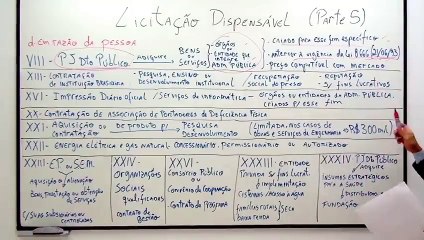 Licitação Dispensável (Parte 5)
d-Em razão da pessoa
VIII - PJ Dto Público → ADQUIRE → BENS ou SERVIÇOS → - ÓRGÃOS - ENTIDADE que integre ADM. PÚBLICA
- CRIADO para esse fim específico
- ANTERIOR À vigência da Lei 8666 (21/06/93)
- PREÇO compatível com MERCADO
XIII - CONTRATAÇÃO de INSTITUIÇÃO BRASILEIRA → PESQUISA, ENSINO OU Desenvolvimento institucional / RECUPERAÇÃO social do preso
- REPUTAÇÃO
- S/ fins lucrativos
XVI - IMPRESSÃO Diário Oficial / Serviços de Informática - ÓRGÃOS OU ENTIDADES DA ADM. PÚBLICA, CRIADOS P/ ESSE FIM
XX - CONTRATAÇÃO DE ASSOCIAÇÃO DE PORTADORES DE DEFICIÊNCIA FÍSICA
XXI - AQUISIÇÃO DE PRODUTO p/ PESQUISA Desenvolvimento (LIMITADA, NOS CASOS DE OBRAS E SERVIÇOS DE ENGENHARIA → R$ 300 mil)
XXII - ENERGIA ELÉTRICA E GÁS NATURAL: CONCESSIONÁRIO, PERMISSIONÁRIO OU AUTORIZADO
XXIII - EP ou SEM
AQUISIÇÃO OU ALIENAÇÃO
BENS, PRESTAÇÃO OU OBTENÇÃO DE SERVIÇOS
C/ SUAS SUBSIDIÁRIAS OU CONTROLADAS
XXIV -
ORGANIZAÇÕES
SOCIAIS
qualificadas
CONTRATO DE GESTÃO
XXVI -
CONSÓRCIO Público
ou
CONVÊNIO DE COOPERAÇÃO
CONTRATO DE PROGRAMA
XXXIII - ENTIDADE
PRIVADA S/ fins lucrat.
Implementação
CISTERNAS / ACESSO À ÁGUA
FAMÍLIAS RURAIS / SECA
BAIXA RENDA
XXXIV PJ Dto Público
INSUMOS ESTRATÉGICOS
PARA A SAÚDE
FUNDAÇÃO